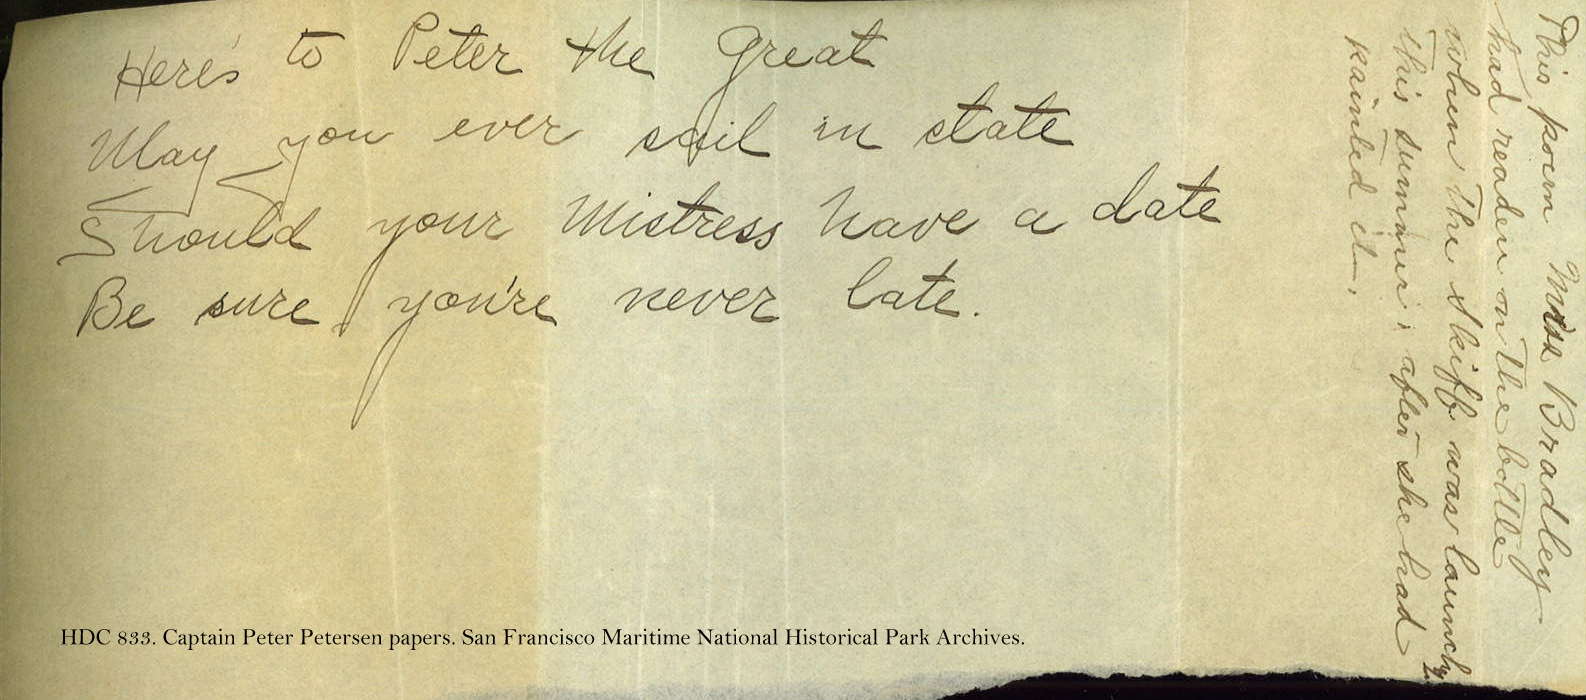 Here's to Peter the Great
May you ever sail in state
Should your Mistress have a date
Be sure you're never late.
This poem Miss Bradley
had readen on the bottle
when the skiff was launch
this summer; after she had
painted it.
HDC 833. Captain Peter Petersen papers. San Francisco Maritime National Historical Park Archives.